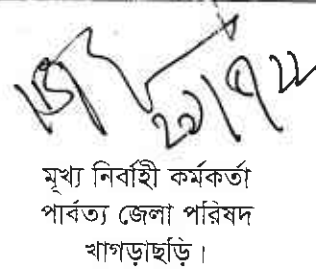 মুখ্য নির্বাহী কর্মকর্তা
পার্বত্য জেলা পরিষদ
খাগড়াছড়ি।